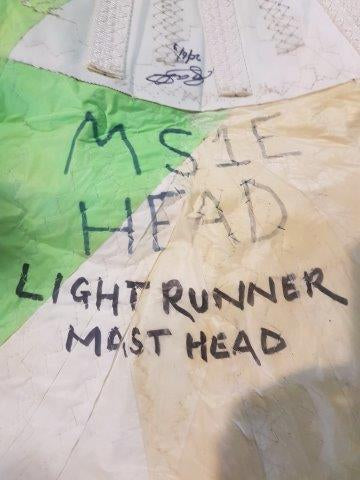 MS1E
HEAD
LIGHT RUNNER
MAST HEAD